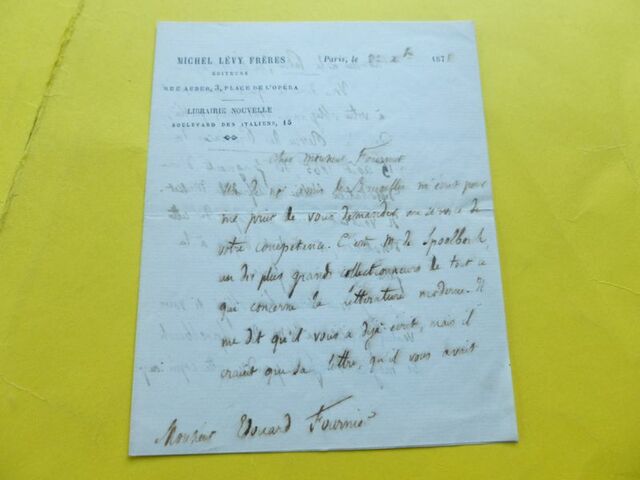 MICHEL LÉVY FRÈRES
ÉDITEURS
RUE AUBER, 3, PLACE DE L'OPÉRA
LIBRAIRIE NOUVELLE
BOULEVARD DES ITALIENS, 15
Paris, le 187
Cher Monsieur Fournier
de Bruxelles m'écrit pour
me prier de vous demander un service de
votre compétence. C'est M. de Spoelberch,
un des plus grands collectionneurs de tout ce
qui concerne la littérature moderne. Il
me dit qu'il vous a déjà écrit, mais il
craint que sa lettre, qu'il vous avait
Monsieur Edouard Fournier